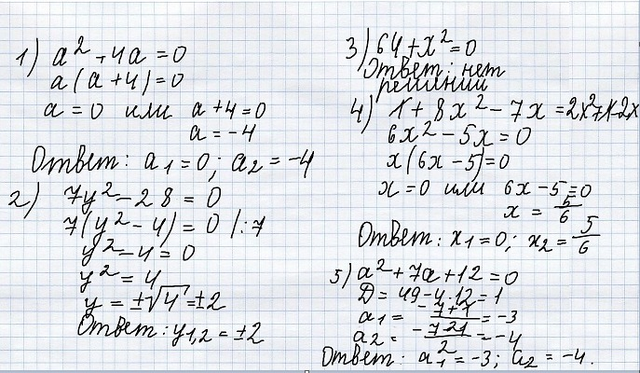 1) a² + 4a = 0
a(a+4) = 0
a = 0 или a+4=0
a = -4
Ответ: a₁=0; a₂=-4
2) 7y² - 28 = 0
7(y² - 4) = 0 /:7
y² - 4 = 0
y² = 4
y = ±√4 = ±2
Ответ: y₁,₂ = ±2
3) 64 + x² = 0
Ответ: нет
решений
4) 1 + 8x² - 7x =
6x² - 5x = 0
x(6x - 5) = 0
x = 0 или 6x - 5 = 0
x = 5/6
Ответ: x₁=0; x₂=5/6
5) a² + 7a + 12 = 0
D = 49 - 4·12 = 1
a₁ = = -3
a₂ = = -4
Ответ: a₁ = -3; a₂ = -4.